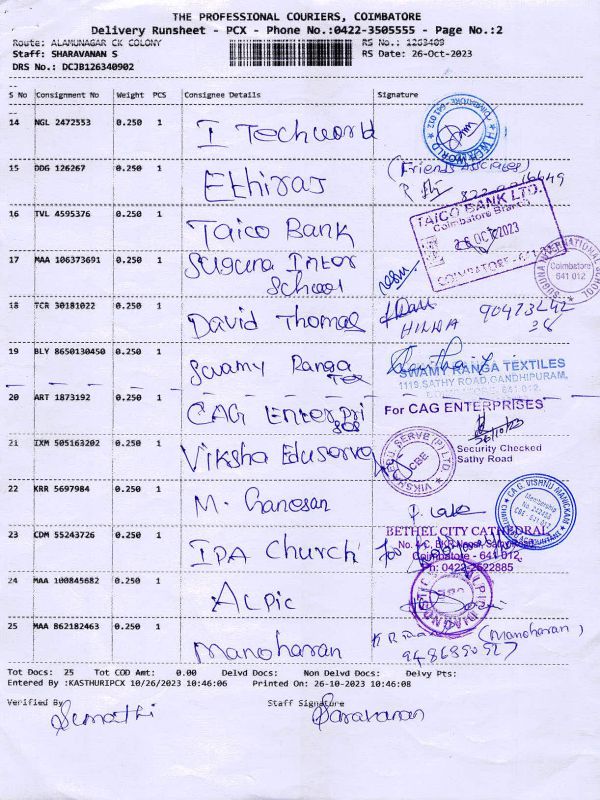 THE PROFESSIONAL COURIERS, COIMBATORE
Delivery Runsheet - PCX - Phone No.:0422-3505555 - Page No.:2
Route: ALAMUNAGAR CK COLONY RS No.: 1263409
Staff: SHARAVANAN S RS Date: 26-Oct-2023
DRS No.: DCJB126340902
S No Consignment No Weight PCS Consignee Details Signature
14 NGL 2472553 0.250 1 I Techworld
15 DDG 126267 0.250 1 Ethiraj (Friends Associates)
16 TVL 4595376 0.250 1 Taico Bank TAICO BANK LTD.
Coimbatore Branch
26 OCT 2023
COIMBATORE - 641 012
17 MAA 106373691 0.250 1 Suguna Inter School SUGUNA INTERNATIONAL SCHOOL Coimbatore 641 012
18 TCR 30181022 0.250 1 David Thomas
19 BLY 8650130450 0.250 1 Swamy Ranga Tex
SWAMY RANGA TEXTILES
1119, SATHY ROAD, GANDHIPURAM,
20 ART 1873192 0.250 1 CAG Enterprises For CAG ENTERPRISES
21 IXM 505163202 0.250 1 Viksha Eduserve
Security Checked
Sathy Road
22 KRR 5697984 0.250 1 M. Ganesan
23 CDM 55243726 0.250 1 IPA Church BETHEL CITY CATHEDRAL
Coimbatore - 641 012
Ph: 0422-2522885
24 MAA 100845682 0.250 1 Alpic
25 MAA 862182463 0.250 1 Manoharan (Manoharan)
Tot Docs: 25 Tot COD Amt: 0.00 Delvd Docs: Non Delvd Docs: Delvy Pts:
Entered By :KASTHURIPCX 10/26/2023 10:46:06 Printed On: 26-10-2023 10:46:08
Verified By Staff Signature
Sumathi Saravanan